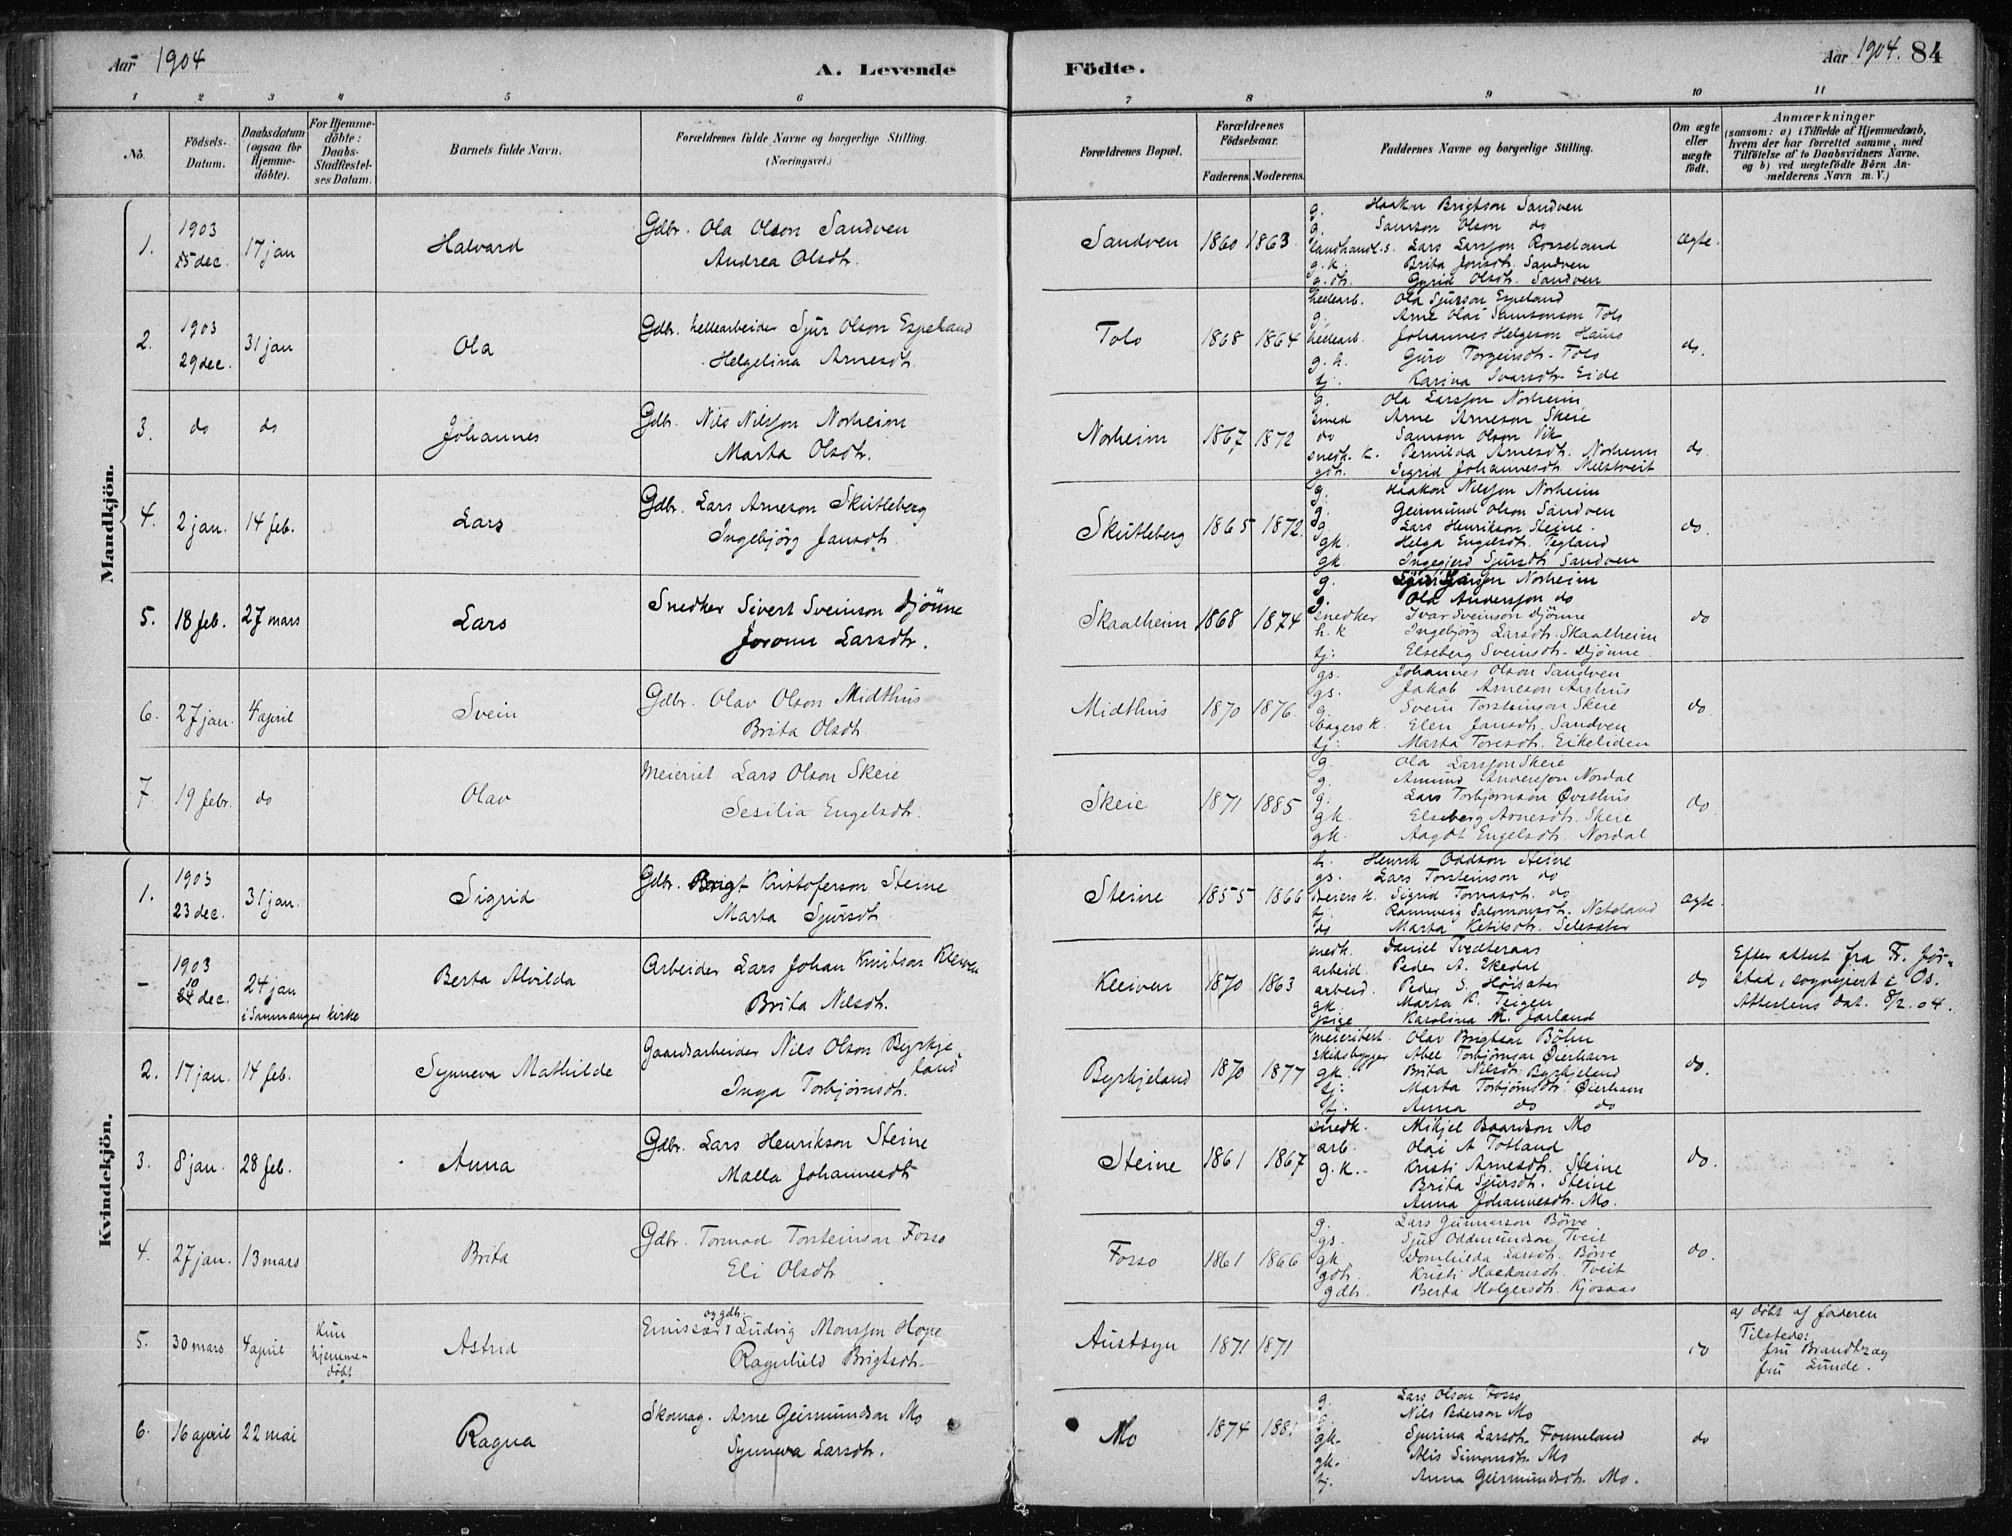 Aar 1904
A. Levende
Födte.
Aar 1904. 84
1 2 3 4 5 6 7 8 9 10 11
No.
Födsels-Datum.
Daabsdatum (ogsaa for Hjemme-döbte).
For Hjemme-döbte: Daabs-Stadfæstel-ses Datum.
Barnets fulde Navn.
Forældrenes fulde Navne og borgerlige Stilling.
(Næringsvei.)
Forældrenes Bopæl.
Forældrenes Födselsaar.
Faderens Moderens
Faddernes Navne og borgerlige Stilling.
Om ægte eller uægte födt.
Anmærkninger
(saasom: a) i Tilfælde af Hjemmedaab,
hvem der har forrettet samme, med
Tilföielse af to Daabsvidners Navne,
og b) ved uægtefödte Börn An-
melderens Navn m. V.)
Mandkjön.
1. 1903 25 dec. 17 jan Halvard
Gdbr. Ola Olson Sandven
Andrea Olsdtr.
Sandven 1860 1863 ægte.
g. Haakon Brigtson Sandven
g. Samson Olson do
landhandl.s. Lars Larsson Rosseland
g.k. Brita Jonsdtr. Sandven
g.dtr. Gyrid Olsdtr. Sandven
2. 1903 29 dec. 31 jan Ola
Gdbr. hellearbeider Sjur Olson Espeland
Helgelina Arnesdtr.
Tolo 1868 1864 do.
hellearb. Ola Sjurson Espeland
g. Arne Olai Samsonson Tolo
hellearb. Johannes Helgeson Haus
g.k. Guro Torgeirsdtr. Tolo
tj. Karina Ivarsdtr. Eide
3. do do Johannes
Gdbr. Nils Nilsson Norheim
Marta Olsdtr.
Norheim 1867 1872 do.
g. Ola Larsson Norheim
smed Arne Arneson Skeie
do Samson Olson Vik
snedk. k. Pernilda Arnesdtr. Norheim
gdtr. Sigrid Johannesdtr. Melstveit
4. 2 jan. 14 feb. Lars
Gdbr. Lars Arneson Skutleberg
Ingebjörg Jansdtr.
Skutleberg 1865 1872. do.
g. Haakon Nilsson Norheim
g. Geirmund Olson Sandven
g. Lars Henrikson Steine.
gk. Helga Engelsdtr. Tegland
gk. Ingegjerd Sjursdtr Sandven
5. 18 feb. 27 mars Lars
Snedker Sivert Sveinson Djönne
Joronn Larsdtr.
Skaalheim 1868 1874 do
g. Norheim
g. Ola Andersson do
snedker Ivar Sveinson Djönne
h.k Ingebjörg Larsdtr. Skaalheim
tj: Elseberg Sveinsdtr. Djönne
6. 27 jan. 4 april Svein
Gdbr. Olav Olson Midthus
Brita Olsdtr.
Midthus 1870 1876 do
gs. Johannes Olson Sandven
gs. Jakob Arneson Aarhus
g. Svein Torsteinson Skeie
bagers k. Elen Jansdtr. Sandven
tj: Marta Toresdtr. Eikeliden
7. 19 febr. do Olav
Meieriet Lars Olson Skeie
Sesilia Engelsdtr.
Skeie 1871 1885 do
g. Ola Larsson Skeie
g. Amund Andersson Nordal
g. Lars Torbjornson Øvsthus
gk. Elseberg Arnesdtr. Skeie
gk. Aagot Engelsdtr. Nordal
Kvindekjön.
1. 1903 23 dec. 31 jan. Sigrid
Gdbr. Brigt Kristoferson Steine
Marta Sjursdtr.
Steine 1855 1866 ægte.
h. Henrik Oddson Steine
gs. Lars Torsteinson do
Sigrid Tormodsdtr. do
tj. Rannveig Salomonsdtr. Neteland
do Marta Ketilsdtr. Selesæter
– 1903 10 dec. 24 jan i Sammanger kirke Berta Alvilda
Arbeider Lars Johan Knutson Kleiven
Brita Nilsdtr.
Kleiven 1870 1863 do
snedk. Daniel Tvedteraas
arbeid. Peder A. Ekedal
arbeid. Peder S. Höisæter
gk. Marta K. Teigen
pige Karolina M. Jarland
Efter attest fra Fr. Jör-
stad, sogneprest i Os.
Attestens dat. 8/2.04.
2. 17 jan. 14 feb. Synneva Mathilde
Gaardsarbeider Nils Olson Byrkje-
land
Inga Torbjörnsdtr.
Byrkjeland 1870 1877 do.
meieribest. Olav Brigtson Böhn
skibsbygger Abel Torbjörnson Øierhavn
gk. Brita Nilsdtr. Byrkjeland
tj: Marta Torbjörnsdtr. Øierhavn
tj. Anna do do
3. 8 jan. 28 feb. Anna
Gdbr. Lars Henrikson Steine
Malla Johannesdtr
Steine 1861 1867 do.
snedk. Mikjel Baardson Mo
arb. Olai A Totland
g.k. Kristi Arnesdtr. Steine
Brita Sjursdtr. Steine
Anna Johannesdtr. Mo.
4. 27 jan. 13 mars Brita
Gdbr. Tormod Torsteinson Fosso
Eli Olsdtr
Fosso 1861 1866 do.
g. Lars Gunnarson Börve
gs. Sjur Oddmundson Tveit
gk Domhilda Larsdtr. Börve
gdtr. Kristi Haakonsdtr. Tveit
gdtr. Berta Holgersdtr. Kjosaas
5. 30 mars 4 april Kun hjemme-döbt Astrid
og gdb.
Emissær Ludvig Monsson Hope
Ragnhild Brigtsdtr.
Austsyn 1871 1871 do
a) döbt af faderen
Tilstede:
fru Brandtzæg
fru Lunde.
6. 16 april 22 mai Ragna
Skomag. Arne Geirmundson Mo
Synneva Larsdtr.
Mo 1874 1881 do
g. Lars Olson Fosso
g. Nils Pederson Mo
gk. Sjurina Larsdtr. Fonneland
gk. Alis Simonsdtr. Mo
tj. Anna Geirmundsdtr. Mo.